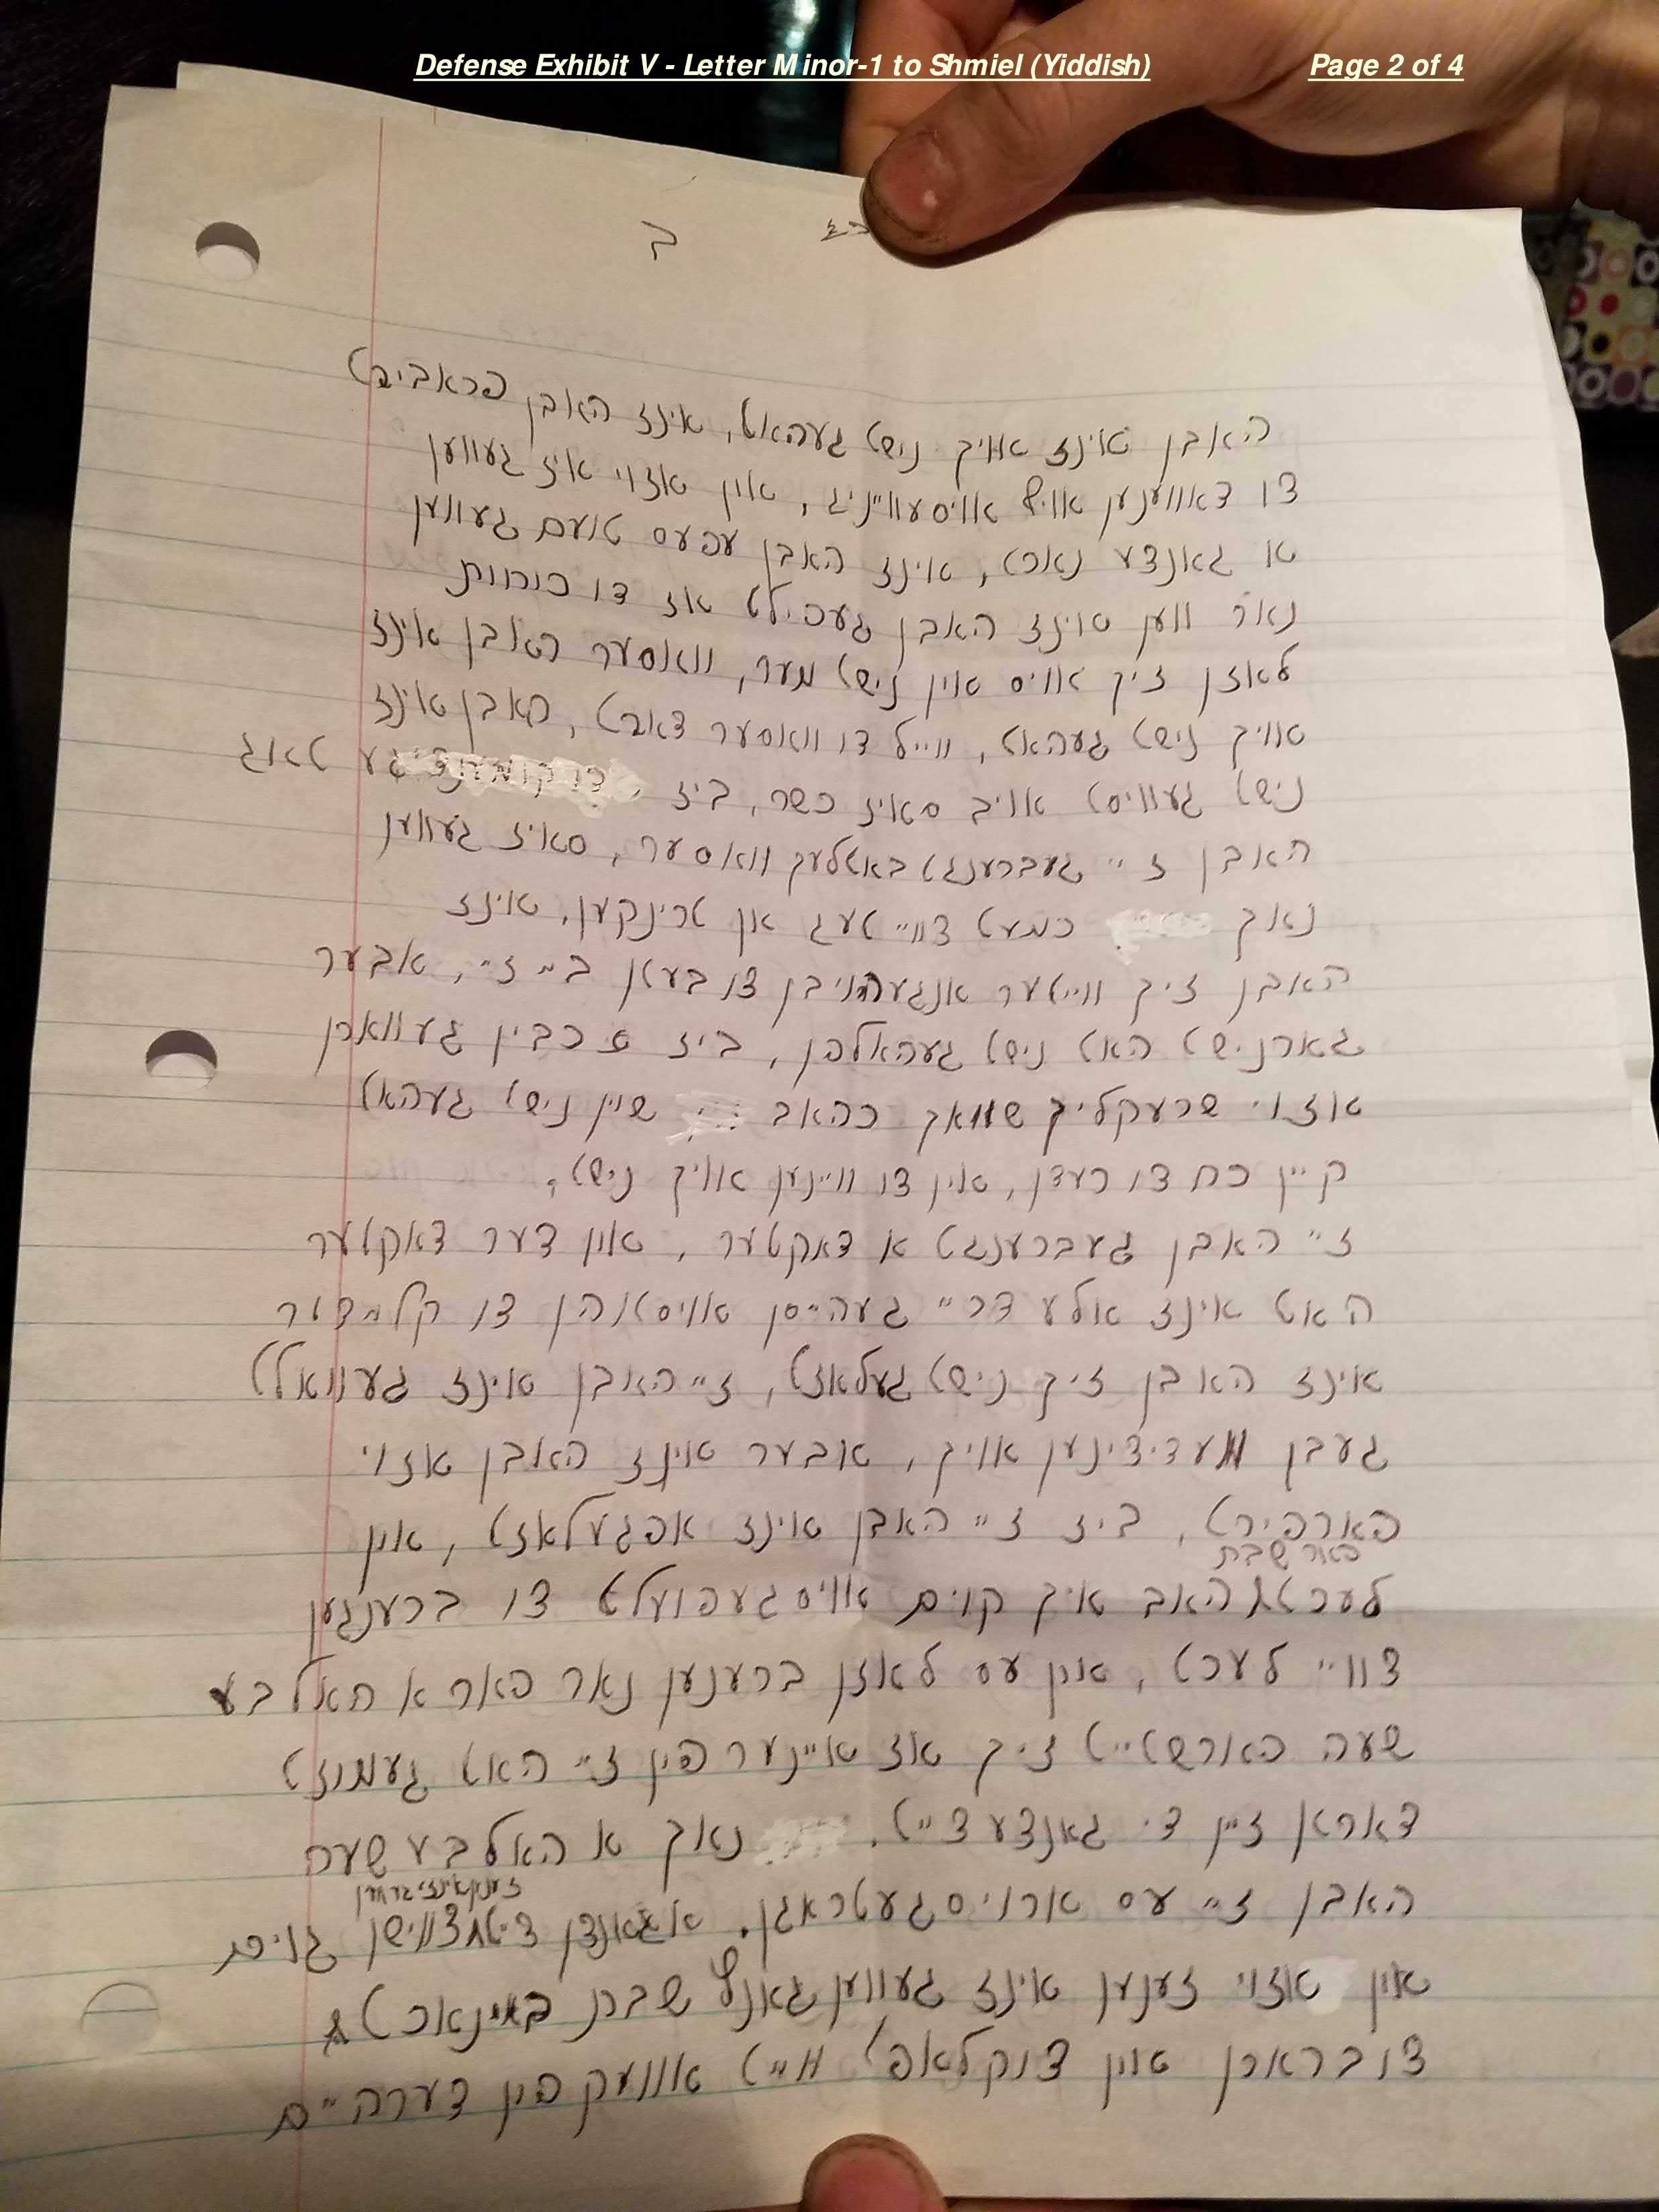 Defense Exhibit V - Letter Minor-1 to Shmiel (Yiddish) Page 2 of 4
ב
האבן אינז אויך נישט געהאט, אינז האבן פראבירט
צו דאווענען אויף אויסעווייניג, און אזוי איז געווען
א גאנצע נאכט, אינז האבן עפעס טועם געווען
נאר ווען אינז האבן געפילט אז די כוחות
לאזן זיך אויס אוין נישט מער, וואסער האבן אינז
אויך נישט געהאט, ווייל די וואסער דארט, האבן אינז
נישט געוויסט אויב סאיז כשר, ביז די קומענדיגע טאג
האבן זיי געברענגט באטלעך וואסער, סאיז געווען
נאך כמעט צוויי טעג אן טרינקען, אינז
האבן זיך ווייטער אנגעהויבן צו בעטן ביי זיי, אבער
גארנישט האט נישט געהאלפן, ביז כבין געווארן
אזוי שרעקליך שוואך כהאב שוין נישט געהאט
קיין כח צו רעדן, אוין צו וויינען אויך נישט,
זיי האבן געברענגט א דאקטער, און דער דאקטער
האט אינז אלע דריי געהייסן אויסטוהן צו קליידער
אינז האבן זיך נישט געלאזט, זיי האבן אינז געוואלט
געבן מעדיצינען אויך, אבער אינז האבן אזוי
פארפירט, ביז זיי האבן אינז אפגעלאזט, און
פאר שבת
לערט האב איך קוים אויסגעפועלט צו ברענגען
צוויי לעכט, און עס לאזן ברענען נאר פאר א האלבע
שעה פארשטייט זיך אז איינער פין זיי האט געמוזט
דארטן זיין די גאנצע צייט. נאך א האלבע שעה
האבן זיי עס ארויסגעטראגן. אגאנצן צייט צווישן גויפת
זענען אינז געווען
אין אזוי זענען אינז געווען גאנץ שבת באינאכט
צובראכן אוין צוקלאפט ווייט אוועק פין דערהיים